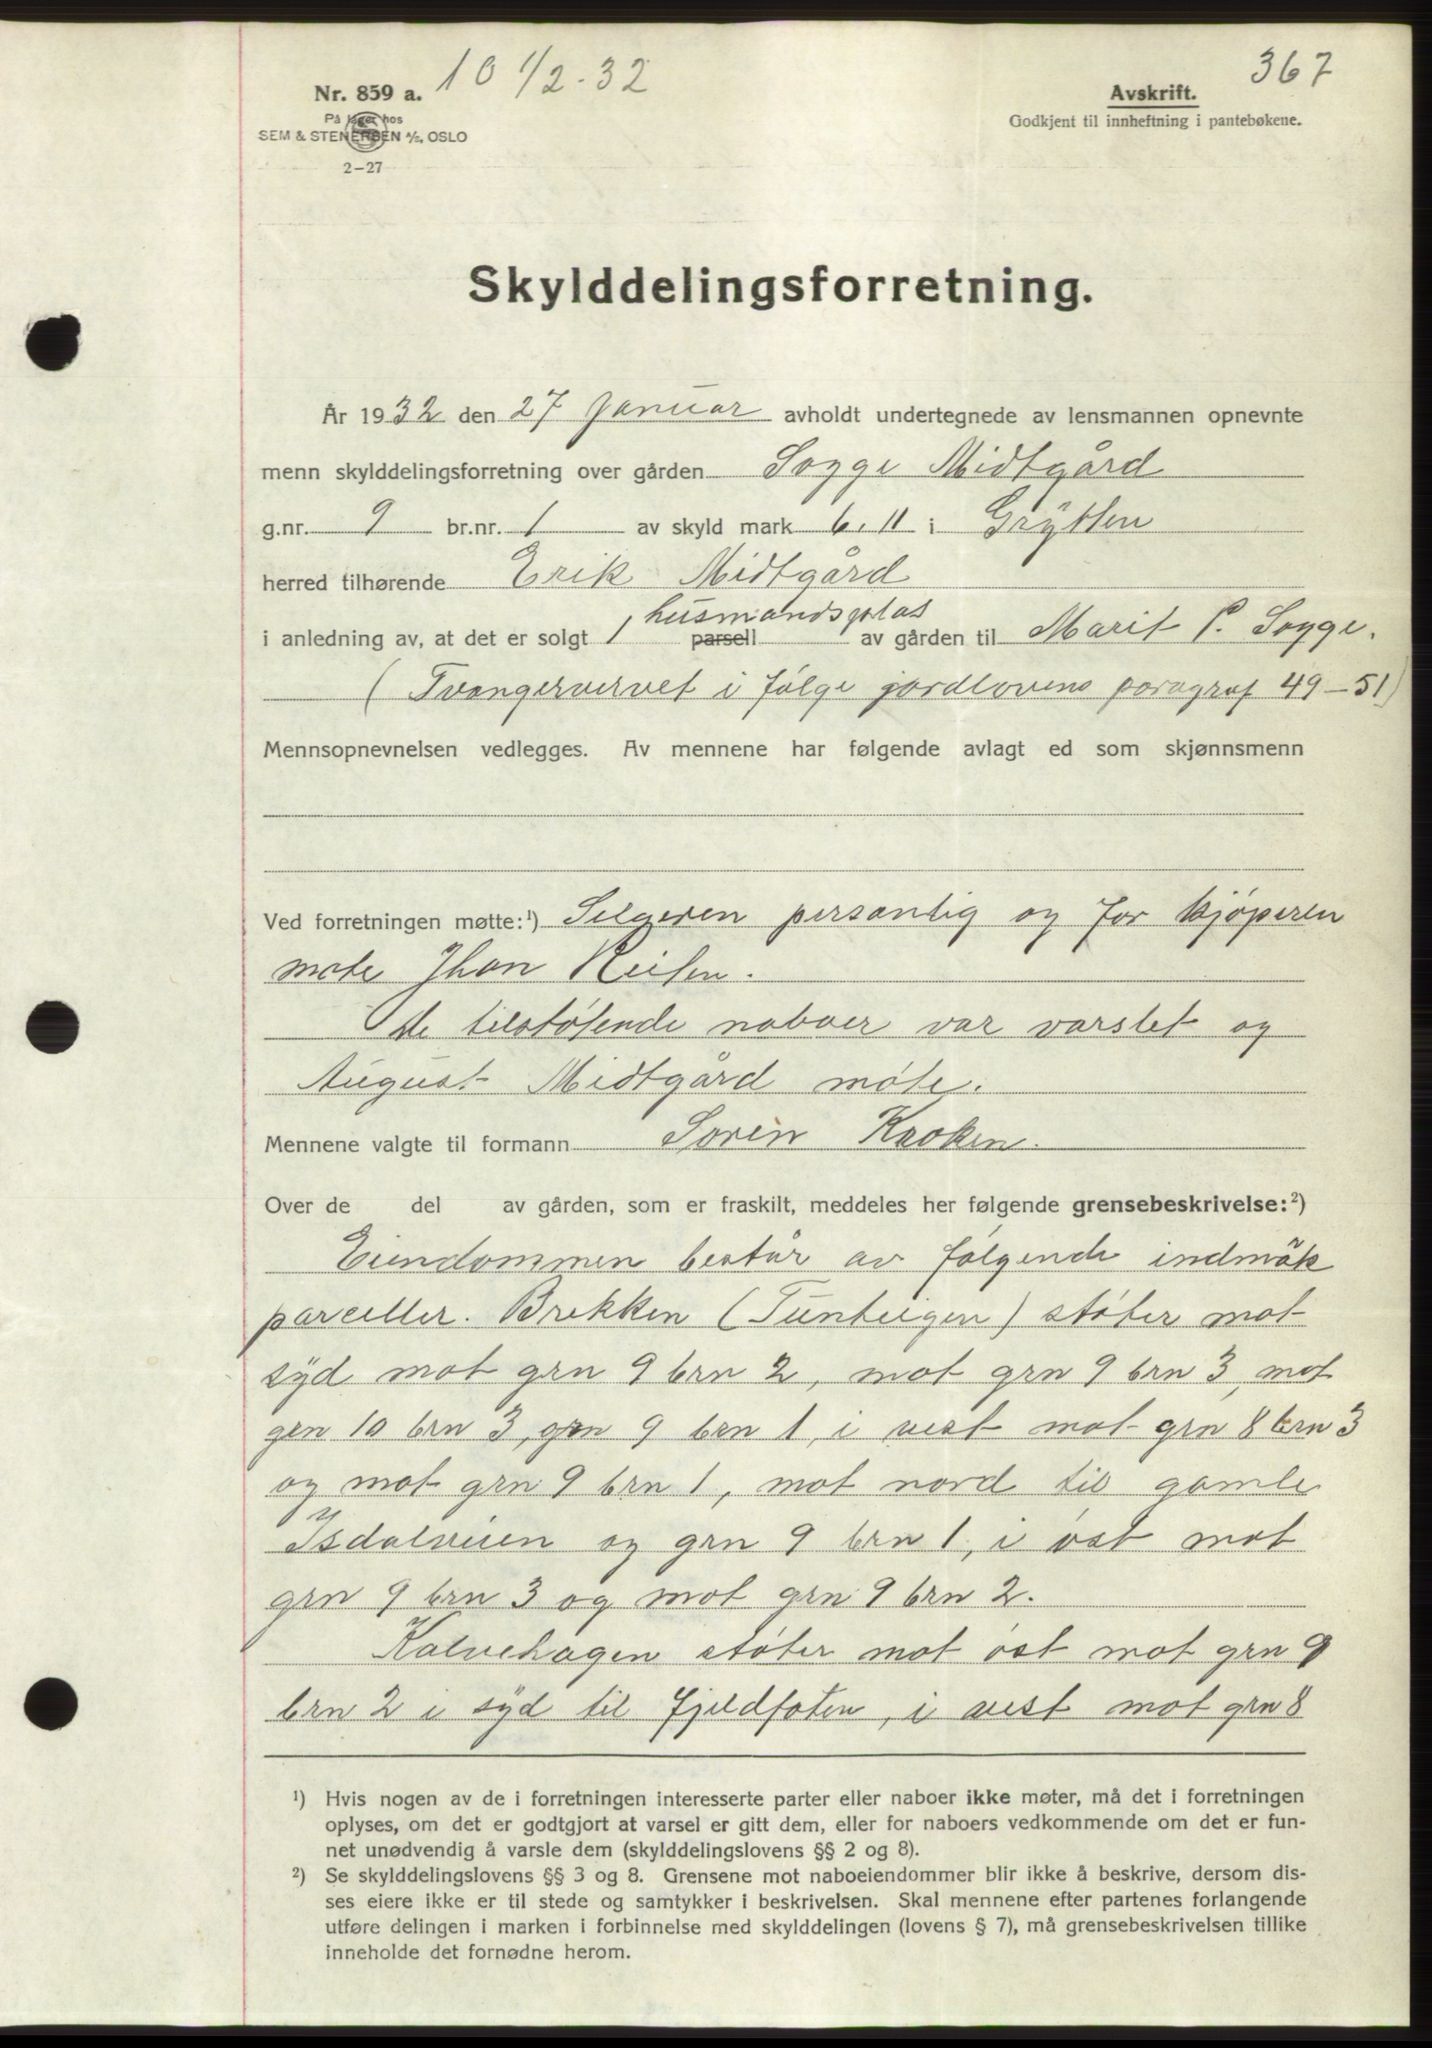 10 1/2-32
367
Nr. 859 a.
På lager hos
SEM & STENERSEN A/S, OSLO
2-27
Avskrift.
Godkjent til innheftning i pantebøkene.
Skylddelingsforretning.
År 1932 den 27 Januar avholdt undertegnede av lensmannen opnevnte
menn skylddelingsforretning over gården Sogge Midtgård
g.nr. 9 br.nr. 1 av skyld mark 6,11 i Grytten
herred tilhørende Erik Midtgård
husmandsplas
i anledning av, at det er solgt 1 parsell av gården til Marit P. Sogge.
(Tvangervervet i følge jordlovens paragraf 49-51)
Mennsopnevnelsen vedlegges. Av mennene har følgende avlagt ed som skjønnsmenn
Ved forretningen møtte:¹) Selgeren personlig og for kjøperen
møte Jhon Reiten.
De tilstøtende naboer var varslet og
August Midtgård møte.
Mennene valgte til formann Søren Kroken.
Over de del av gården, som er fraskilt, meddeles her følgende grensebeskrivelse:²)
Eiendommen består av følgende indmåk
parceller. Brekken (Tunteigen) støter mot
syd mot grn 9 brn 2, mot grn 9 brn 3, mot
gen 10 brn 3, grn 9 brn 1, i vest mot grn 8 brn 3
og mot grn 9 brn 1, mot nord til gamle
Isdalveien og grn 9 brn 1, i øst mot
grn 9 brn 3 og mot grn 9 brn 2.
Kalvehagen støter mot øst mot grn 9
brn 2 i syd til fjeldfoten, i vest mot grn 8
¹) Hvis nogen av de i forretningen interesserte parter eller naboer ikke møter, må det i forretningen
oplyses, om det er godtgjort at varsel er gitt dem, eller for naboers vedkommende om det er fun-
net unødvendig å varsle dem (skylddelingslovens §§ 2 og 8).
²) Se skylddelingslovens §§ 3 og 8. Grensene mot naboeiendommer blir ikke å beskrive, dersom dis-
ses eiere ikke er til stede og samtykker i beskrivelsen. Skal mennene efter partenes forlangende
utføre delingen i marken i forbinnelse med skylddelingen (lovens § 7), må grensebeskrivelsen tillike
inneholde det fornødne herom.